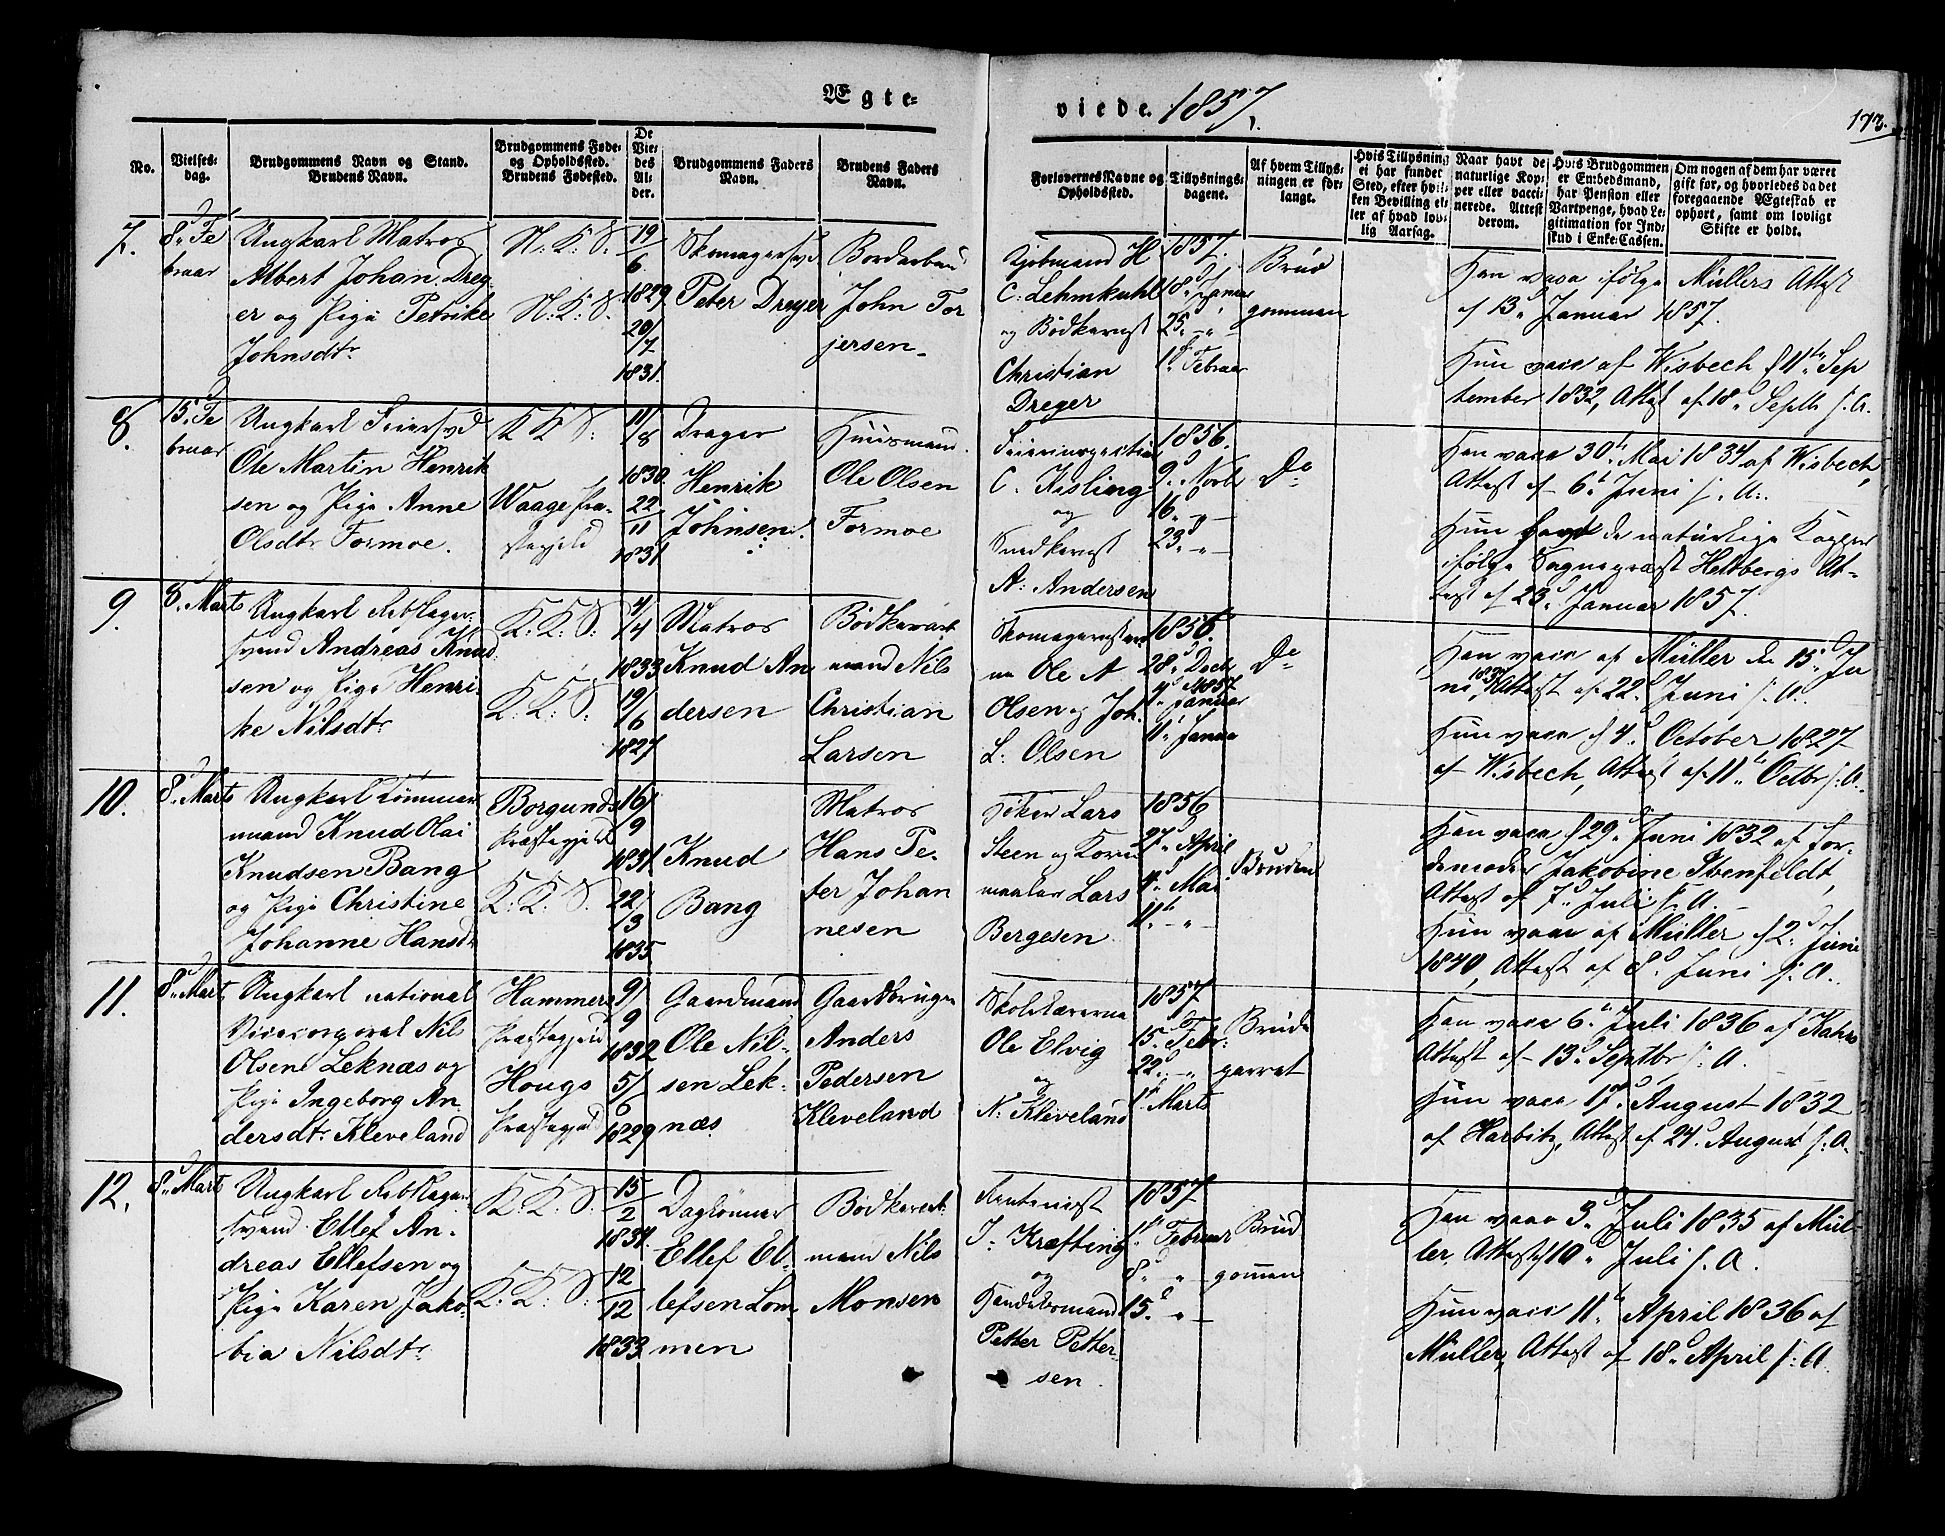 Ægte-
viede. 1857.
173.
No.
Vielses-
dag.
Brudgommens Navn og Stand.
Brudens Navn.
Brudgommens Føde-
og Opholdssted.
Brudens Fødested.
De
Vie-
des
Al-
der.
Brudgommens Faders
Navn.
Brudens Faders
Navn.
Forlovernes Navne og
Opholdssted.
Tillysnings-
dagene.
Af hvem Tillys-
ningen er for-
langt.
Hvis Tillysning
ei har funder
Sted, efter hvil-
ken Bevilling el-
ler af hvad lov-
lig Aarsag.
Naar havt de
naturlige Kop-
per eller vacci-
nerede. Attest
derom.
Hvis Brudgommen
er Embedsmand,
har Pension eller
Vartpenge, hvad Le-
gitimation for Ind-
skud i Enke-Cassen.
Om nogen af dem har været
gift før, og hvorledes da det
foregaaende Ægteskab er
ophørt, samt om lovligt
Skifte er holdt.
7.
8d Fe
bruar
Ungkarl Matros
Albert Johan Drey-
er og Pige Petrike
Johnsdtr
N: K: S.
N: K: S.
19/
6
1829
20/
7
1831.
Skomagersvd
Peter Dreyer
Bordarbeid
John Tor
jersen
Kjøbmand H
C: Lehmkuhl
og Bødkermst
Christian
Dreyer
1857.
18d Januar
25 " -
1d Februar
Brud
gommen
Han vacc ifølge Müllers Attest
af 13d Januar 1857.
Hun vacc af Wisbech d 11te Sep
tember 1832, Attest af 18d Septb s. A.
8.
15. Fe
bruar
Ungkarl Feiersvd
Ole Martin Henrik
sen og Pige Anne
Olsdtr Formoe.
K K S:
Waage Præ-
stegjeld
11/
8
1830
22/
11
1831
Drager
Henrik
Johnsen.
Huusmand
Ole Olsen
Formoe
Feierinspectør
C. Kisling
og
Snedkermst
A: Andersen
1856.
9d Novb
16 " -
23d " -
Do
Han vacc 30te Mai 1834 af Wisbech,
Attest af 6te Juni s. A:.
Hun havt de naturlige Kopper
ifølge Sognepræst Heltbergs At-
test af 23d Januar 1857.
9.
8. Marts
Ungkarl Rebslager-
svend Andreas Knud
sen og Pige Henri-
ke Nilsdtr
K: K: S:
K: K: S.
4/
4
1833
19/
6
1827
Matros
Knud An
dersen
Bødkerarb
mand Nils
Christian
Larsen
Skomagermster
ne Ole A
Olsen og Joh.
L: Olsen
1856.
28d Decb
4d 1857 Januar
11. Janua
Do
Han vacc af Müller de 15d Ju
ni 1837, Attest af 22d Juni s: A.
Hun vacc d 4d October 1827
af Wisbech, Attest af 11te Octbr s: A.
10.
8d Marts
Ungkarl Tømmer
mand Knud Olai
Knudsen Bang
og Pige Christine
Johanne Hansdtr
Borgunds
Præstegjeld
K: K: S.
16/
9
1831.
22/
3
1835
Knud
Bang
Matros
Hans Pe-
ter Johan
nesen
Høker Lars
Steen og Korn
maaler Lars
Bergesen
1856
27d April
4d Mai
11te " -
Bruden
Han vacc d 29d Juni 1832 af Jor-
demoder Jakobine Stenfeldt,
Attest af 7d Juli s. A.
Hun vacc af Müller d 2d Juni
1840, Attest af 8d Juni s: A.
11.
8d Marts
Ungkarl national
Vicecorporal Nil
Olsen Leknæs og
Pige Ingeborg An-
dersdtr Kleveland
Hammers
Præstegjeld
Hougs
Præstegjeld
9/
9
1832
5/
6
1829
Gaardmand
Ole Nil-
sen Lek-
næs.
Gaardbruger
Anders
Pedersen
Kleveland
Skolelærerne
Ole Elvig
og
N: Kleveland
1857
15d Febr:
22d " -
1d Marts
Brude
parret
Han vacc 6te Juli 1836 af Kahrs
Attest af 13d Septbr s: A.
Hun vacc 17d August 1832
af Harbitz, Attest af 24d August s. A.
12.
8d Marts
Ungkarl Rebslager
svend Ellef An-
dreas Ellefsen og
Pige Karen Jako-
bia Nilsdtr.
K: K: S.
K: K: S.
15/
2
1834.
12/
12
1833
Daglønner
Ellef El-
lefsen Lom-
men
Bødkerarb
mand Nils
Monsen
Rentenist
J: Kræfting
og
Handelsmand
Petter Petter-
sen.
1857
1d Februar
8d " -
15d " -
Brud
gomen
Han vacc 3d Juli 1835 af Mül-
ler, Attest d 10d Juli s. A.
Hun vacc 11te April 1836 af
Müller, Attest af 18d April s: A.